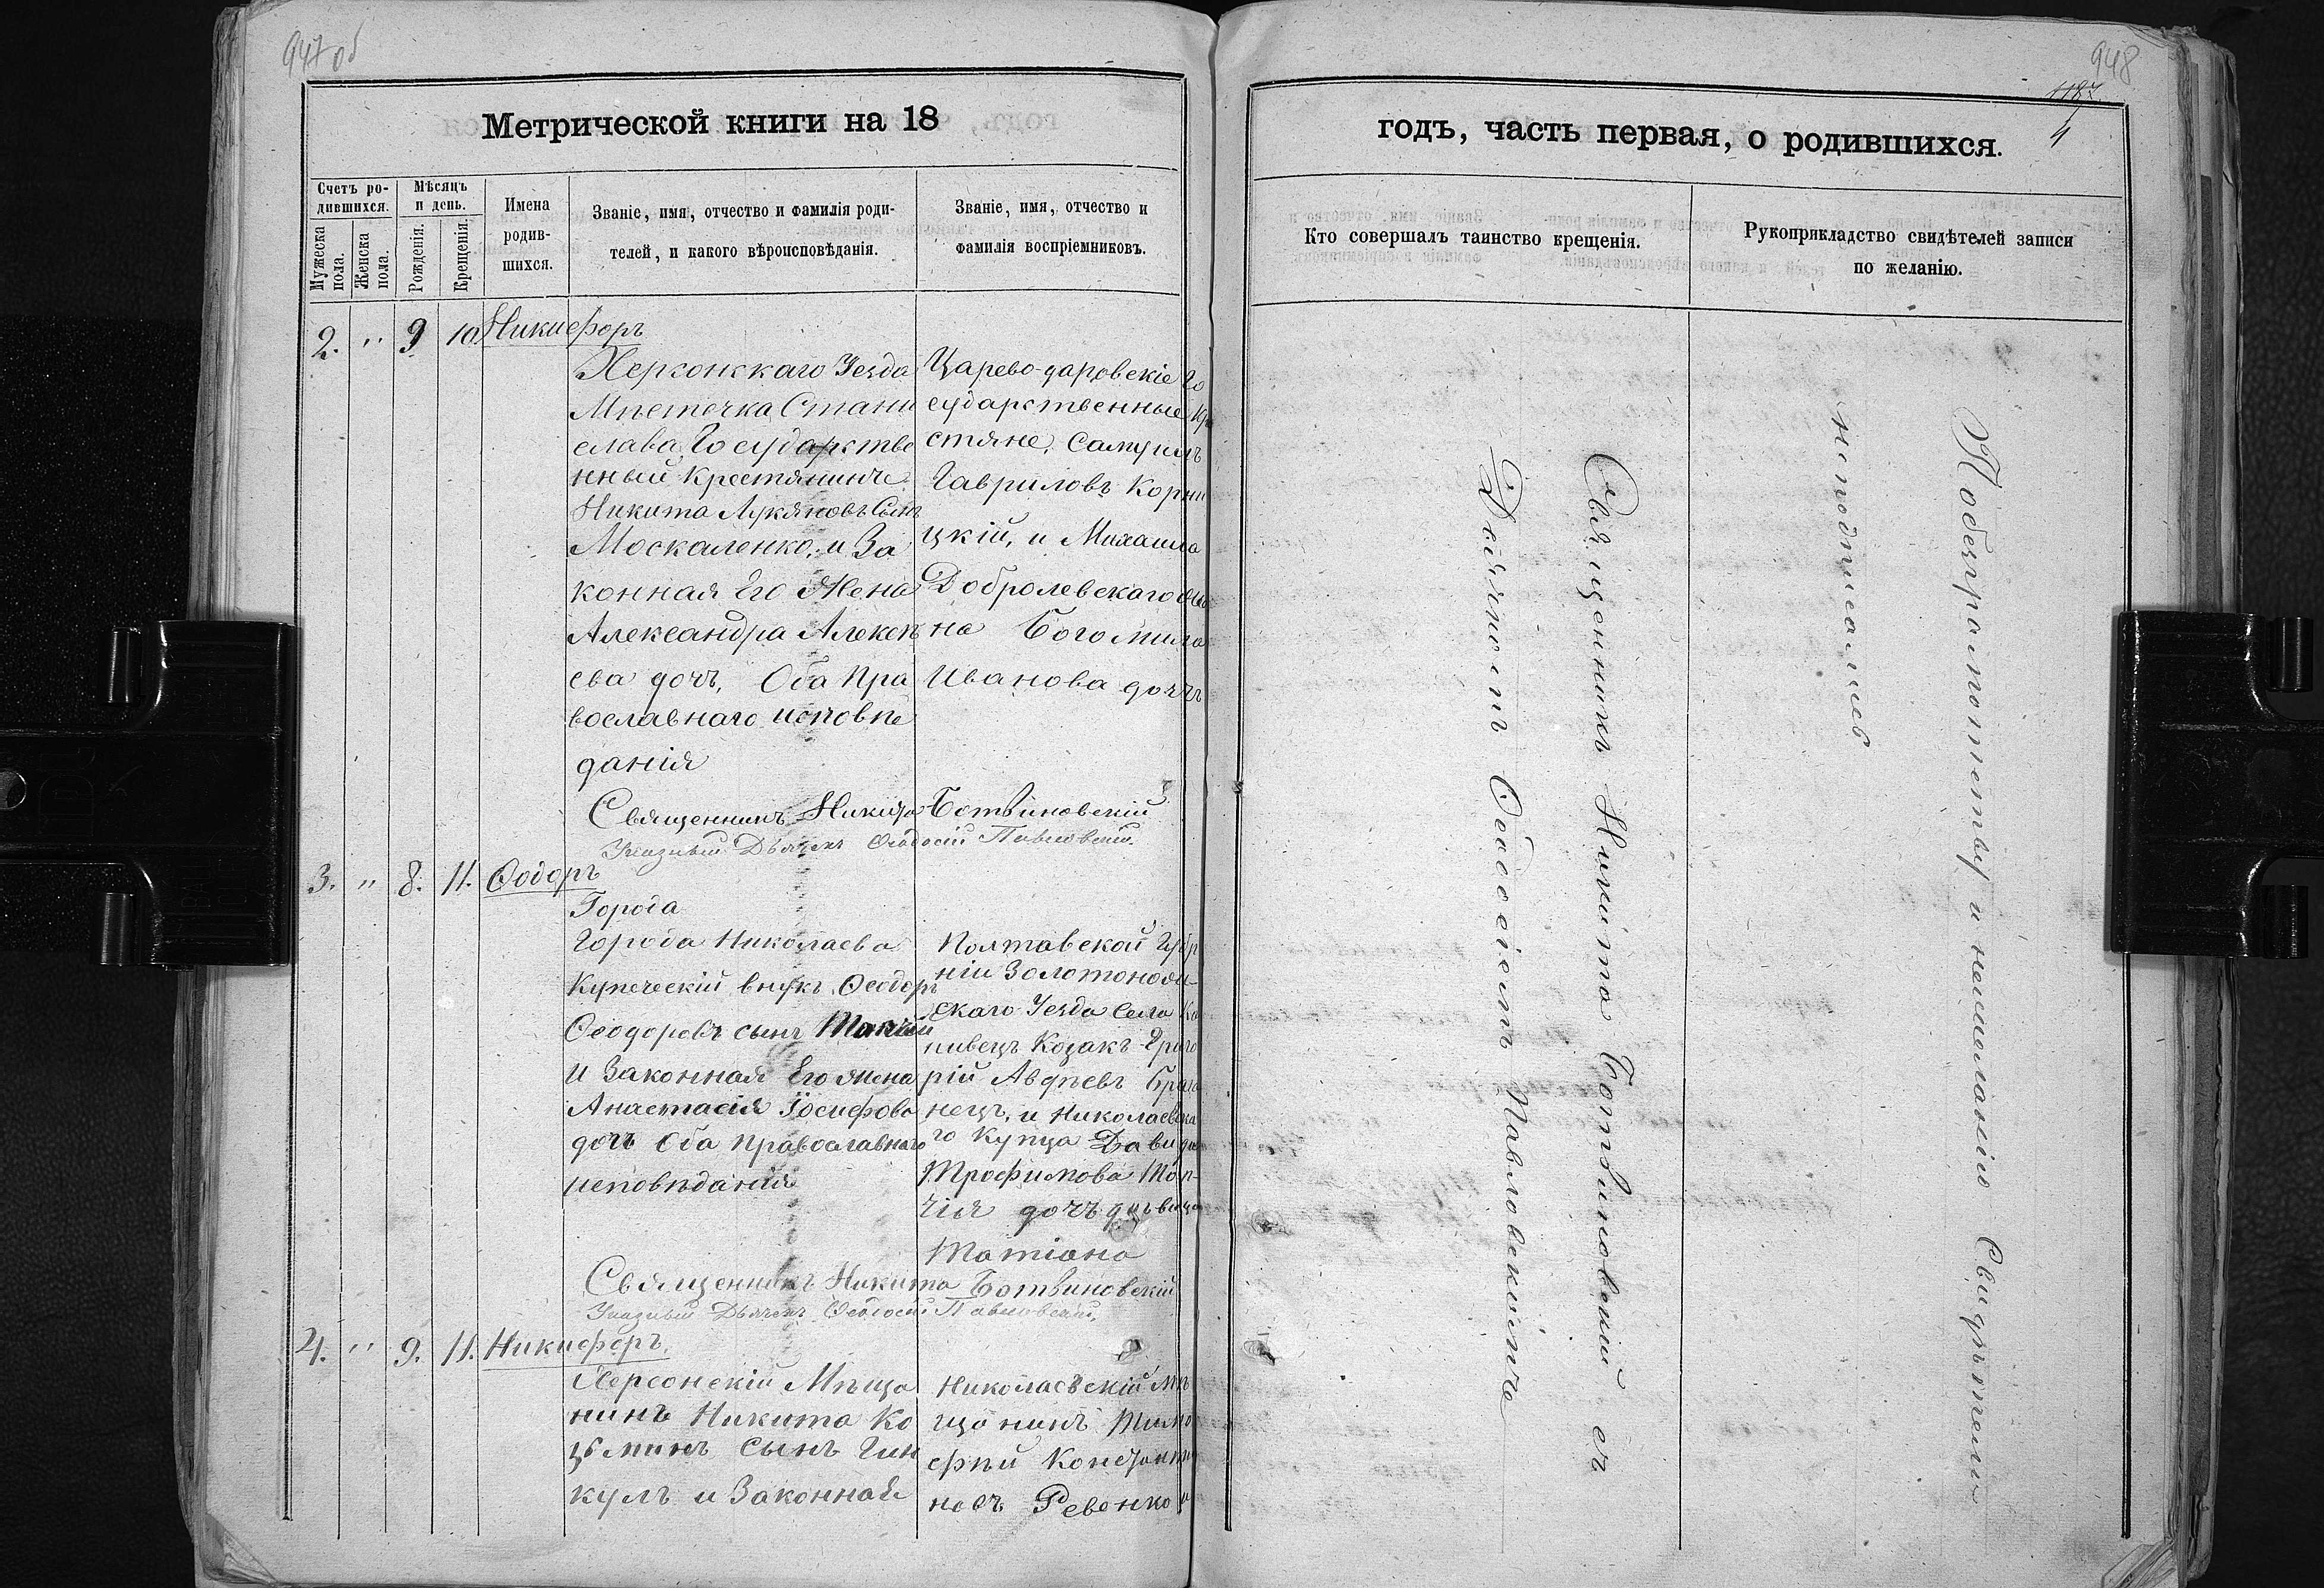 947 об
Метрической книги на 18
Счетъ ро-
дившихся.
Мужеска
пола.
Женска
пола.
Мѣсяцъ
и день.
Рожденія.
Крещенія.
Имена
родив-
шихся.
Званіе, имя, отчество и фамилія роди-
телей, и какого вѣроисповѣданія.
Званіе, имя, отчество и
фамилія воспріемниковъ.
2. " 9 10 Никифоръ
Херсонскаго Уезда
Мѣстечка Стани
слава, Государстве
нный Крестянинъ
Никита Лукяновъ Сынъ
Москаленко, и За
конная Его Жена
Александра Алексѣ
ева дочъ, Оба Пра
вославнаго исповѣ
данія
Царево-даровскіе Го
сударственные Кре
стяне, Самуилъ
Гавриловъ Корни
цкій, и Михаила
Добролевскаго
на Богомила
Иванова дочъ
Священникъ Никита Ботвиновскій
Указный Дьячекъ Ѳеодосій Павловскій.
3. " 8. 11. Ѳодоръ
Города
Города Николаева
Купеческій внукъ Ѳеодоръ
Ѳеодоровъ сынъ
и Законная Его жена
Анастасія Іосифова
дочъ Оба Православнаго
исповѣданія
Полтавской Губр
ніи Золотонош-
скаго Уезда Села
Козакъ Григо
рій Авдѣевъ
нецъ, и Николаевска
го Купца Давида
Трофимова Топ-
чія дочъ дѣвица
Татіана
Священникъ Никита Ботвиновскій
Указный Дьячекъ Ѳеодосій Павловскій.
4. " 9. 11. Никифоръ.
Херсонскій Мѣща
нинъ Никита Ко
зминъ Сынъ Гин
кулъ и Законная
Николаевскій Мѣ
щанинъ Тимо
фѣй Константи
новъ Ревенко и
948
1187
4
годъ, часть первая, о родившихся.
Кто совершалъ таинство крещенія.
Рукоприкладство свидѣтелей записи
по желанію.
Священникъ Никита Ботвиновскій съ
Дьячкомъ Ѳеодосіемъ Павловскимъ
По безграмотству и нежеланію Свидѣтели
не подписались